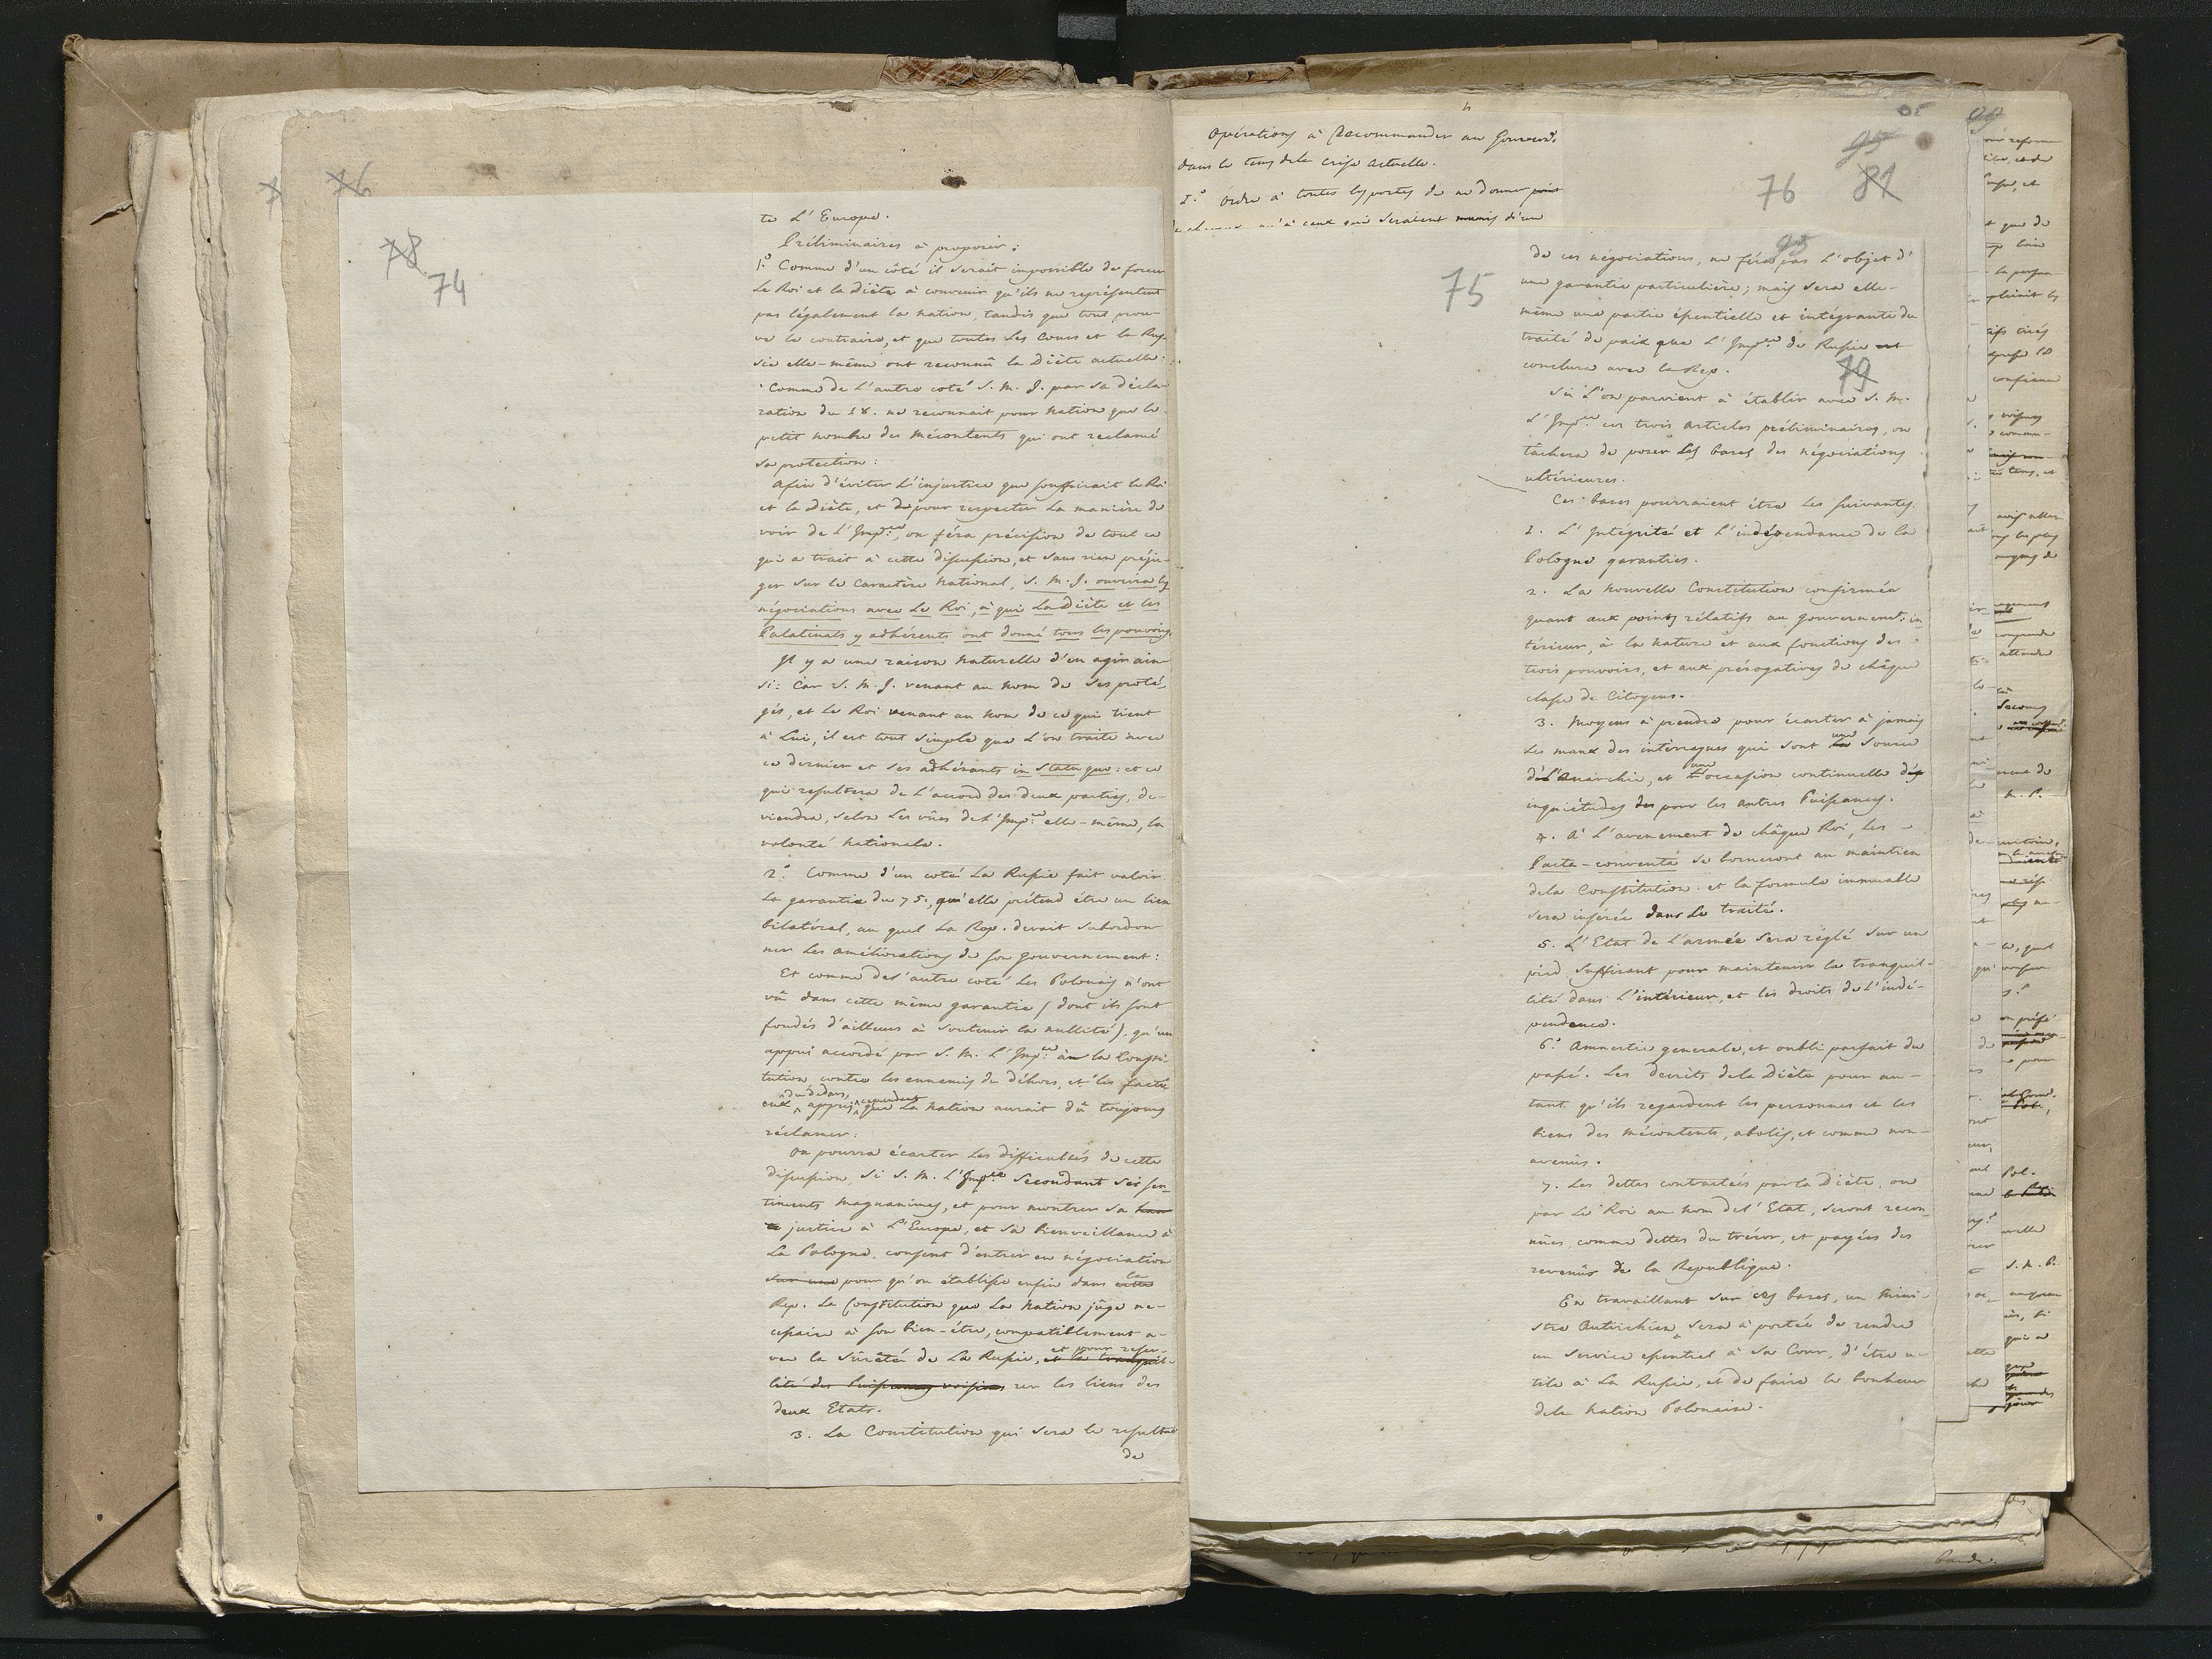 76
78
74
te L'Europe.
Préliminaires à proposer:
1.° Comme d'un côté il serait impossible de forcer
Le Roi et la Diète à convenir qu'ils ne représentent
pas légalement la nation, tandis que tout prou-
ve le contraire, et que toutes les Cours et la Rus-
sie elle-même ont reconnû la Diète actuelle:
Comme de L'autre coté S. M. J. par sa décla-
ration du 18. ne reconnait pour Nation que le
petit nombre des Mécontents qui ont reclamé
sa protection:
Afin d'éviter L'injustice que souffrirait le Roi
et la Diète, et de pour respecter la manière de
voir de L'Imp.ce, on féra précision de tout ce
qui a trait à cette discussion, et sans rien préju-
ger sur le Caractère National, S. M. J. ouvrira les
négociations avec Le Roi, à qui La Diète et les
Palatinats y adhérents ont donné tous les pouvoirs.
Il y a une raison naturelle d'en agir ain-
si: Car S. M. J. venant au nom de ses proté-
gés, et Le Roi venant au nom de ce qui tient
à Lui, il est tout simple que L'on traite avec
ce dernier et ses adhérants in statu quo: et ce
qui resultera de L'accord des deux parties, de-
viendra, selon les vûes de L'Imp.ce elle-même, la
volonté nationale.
2.° Comme d'un coté La Russie fait valoir
La garantie du 75., qu'elle prétend être un lien
bilatéral, au quel La Rep. devait subordon-
ner Les améliorations de son gouvernement:
Et comme de L'autre coté Les Polonais n'ont
vû dans cette même garantie (dont ils sont
fondés d'ailleurs à soutenir la nullité), qu'un
appui accordé par S. M. L'Imp.ce à la Consti-
tution contre les ennemis du déhors, et les factie
eux du dedans, appui cependant que La Nation aurait dû toujours
réclamer:
On pourra écarter Les difficultés de cette
discussion, si S. M. L'Imp.ce Secondant ses sen-
timents magnanimes, et pour montrer sa
justice à L'Europe, et sa bienveillance à
La Pologne, consent d'entrer en négociation
sur une pour qu'on établisse enfin dans cette la
Rep. La Constitution que La Nation juge ne-
cessaire à son bien-être, compatiblement a-
vec la sûreté de La Russie, et la tranquil- et pour resser-
lité des Puissances voisines rer les liens des
deux Etats.
3. La Constitution qui sera le resultat
de
Opérations à Recommander au Gouvern.t
dans le tems de la Crise actuelle.
1.° Ordre à toutes les postes de ne donner point
de chevaux qu'à ceux qui seraient munis d'un
95
76
81
93
75
79
99
de ces négociations, ne féra pas L'objet d'
une garantie particulière; mais sera elle-
même une partie essentielle et intégrante du
traité de paix que L'Imp.ce de Russie
conclura avec la Rep.
Si L'on parvient à établir avec S. M.
L'Imp.ce ces trois articles préliminaires, on
tâchera de poser Les bases des négociations
ultérieures.
Ces bases pourraient être Les suivantes.
1. L'Intégrité et L'indépendance de la
Pologne garanties.
2. La nouvelle Constitution confirmée
quant aux points rélatifs au gouvernemt: in
térieur, à la nature et aux fonctions des
trois pouvoirs, et aux prérogatives de châque
classe de Citoyens.
3. Moyens à prendre pour écarter à jamais
Les maux des interregnes qui sont la une source
de L'Anarchie, et L' une occasion continuelle des
inquiétudes des pour les autres Puissances.
4. A L'avenement de châque Roi, Les
Pacta-conventa se borneront au maintien
de la Constitution: et la formule immuable
sera insérée dans Le traité.
5. L'Etat de L'armée sera réglé sur un
pied suffisant pour maintenir la tranquil-
lité dans L'intérieur, et les droits de L'indé-
pendance.
6.° Amnestie generale, et oubli parfait du
passé. Les decrèts de la Diète pour au-
tant qu'ils regardent les personnes et les
biens des mécontents, abolis, et comme non-
avenûs.
7. Les dettes contractées par la Diète, ou
par Le Roi au nom de L'Etat, seront recon-
nûes comme dettes du trésor, et payées des
revenûs de la Republique.
En travaillant sur ces bases, un Mini-
stre Autrichien sera à portée de rendre
un Service essentiel à Sa Cour, d'être u-
tile à La Russie, et de faire le bonheur
de la Nation Polonaise.